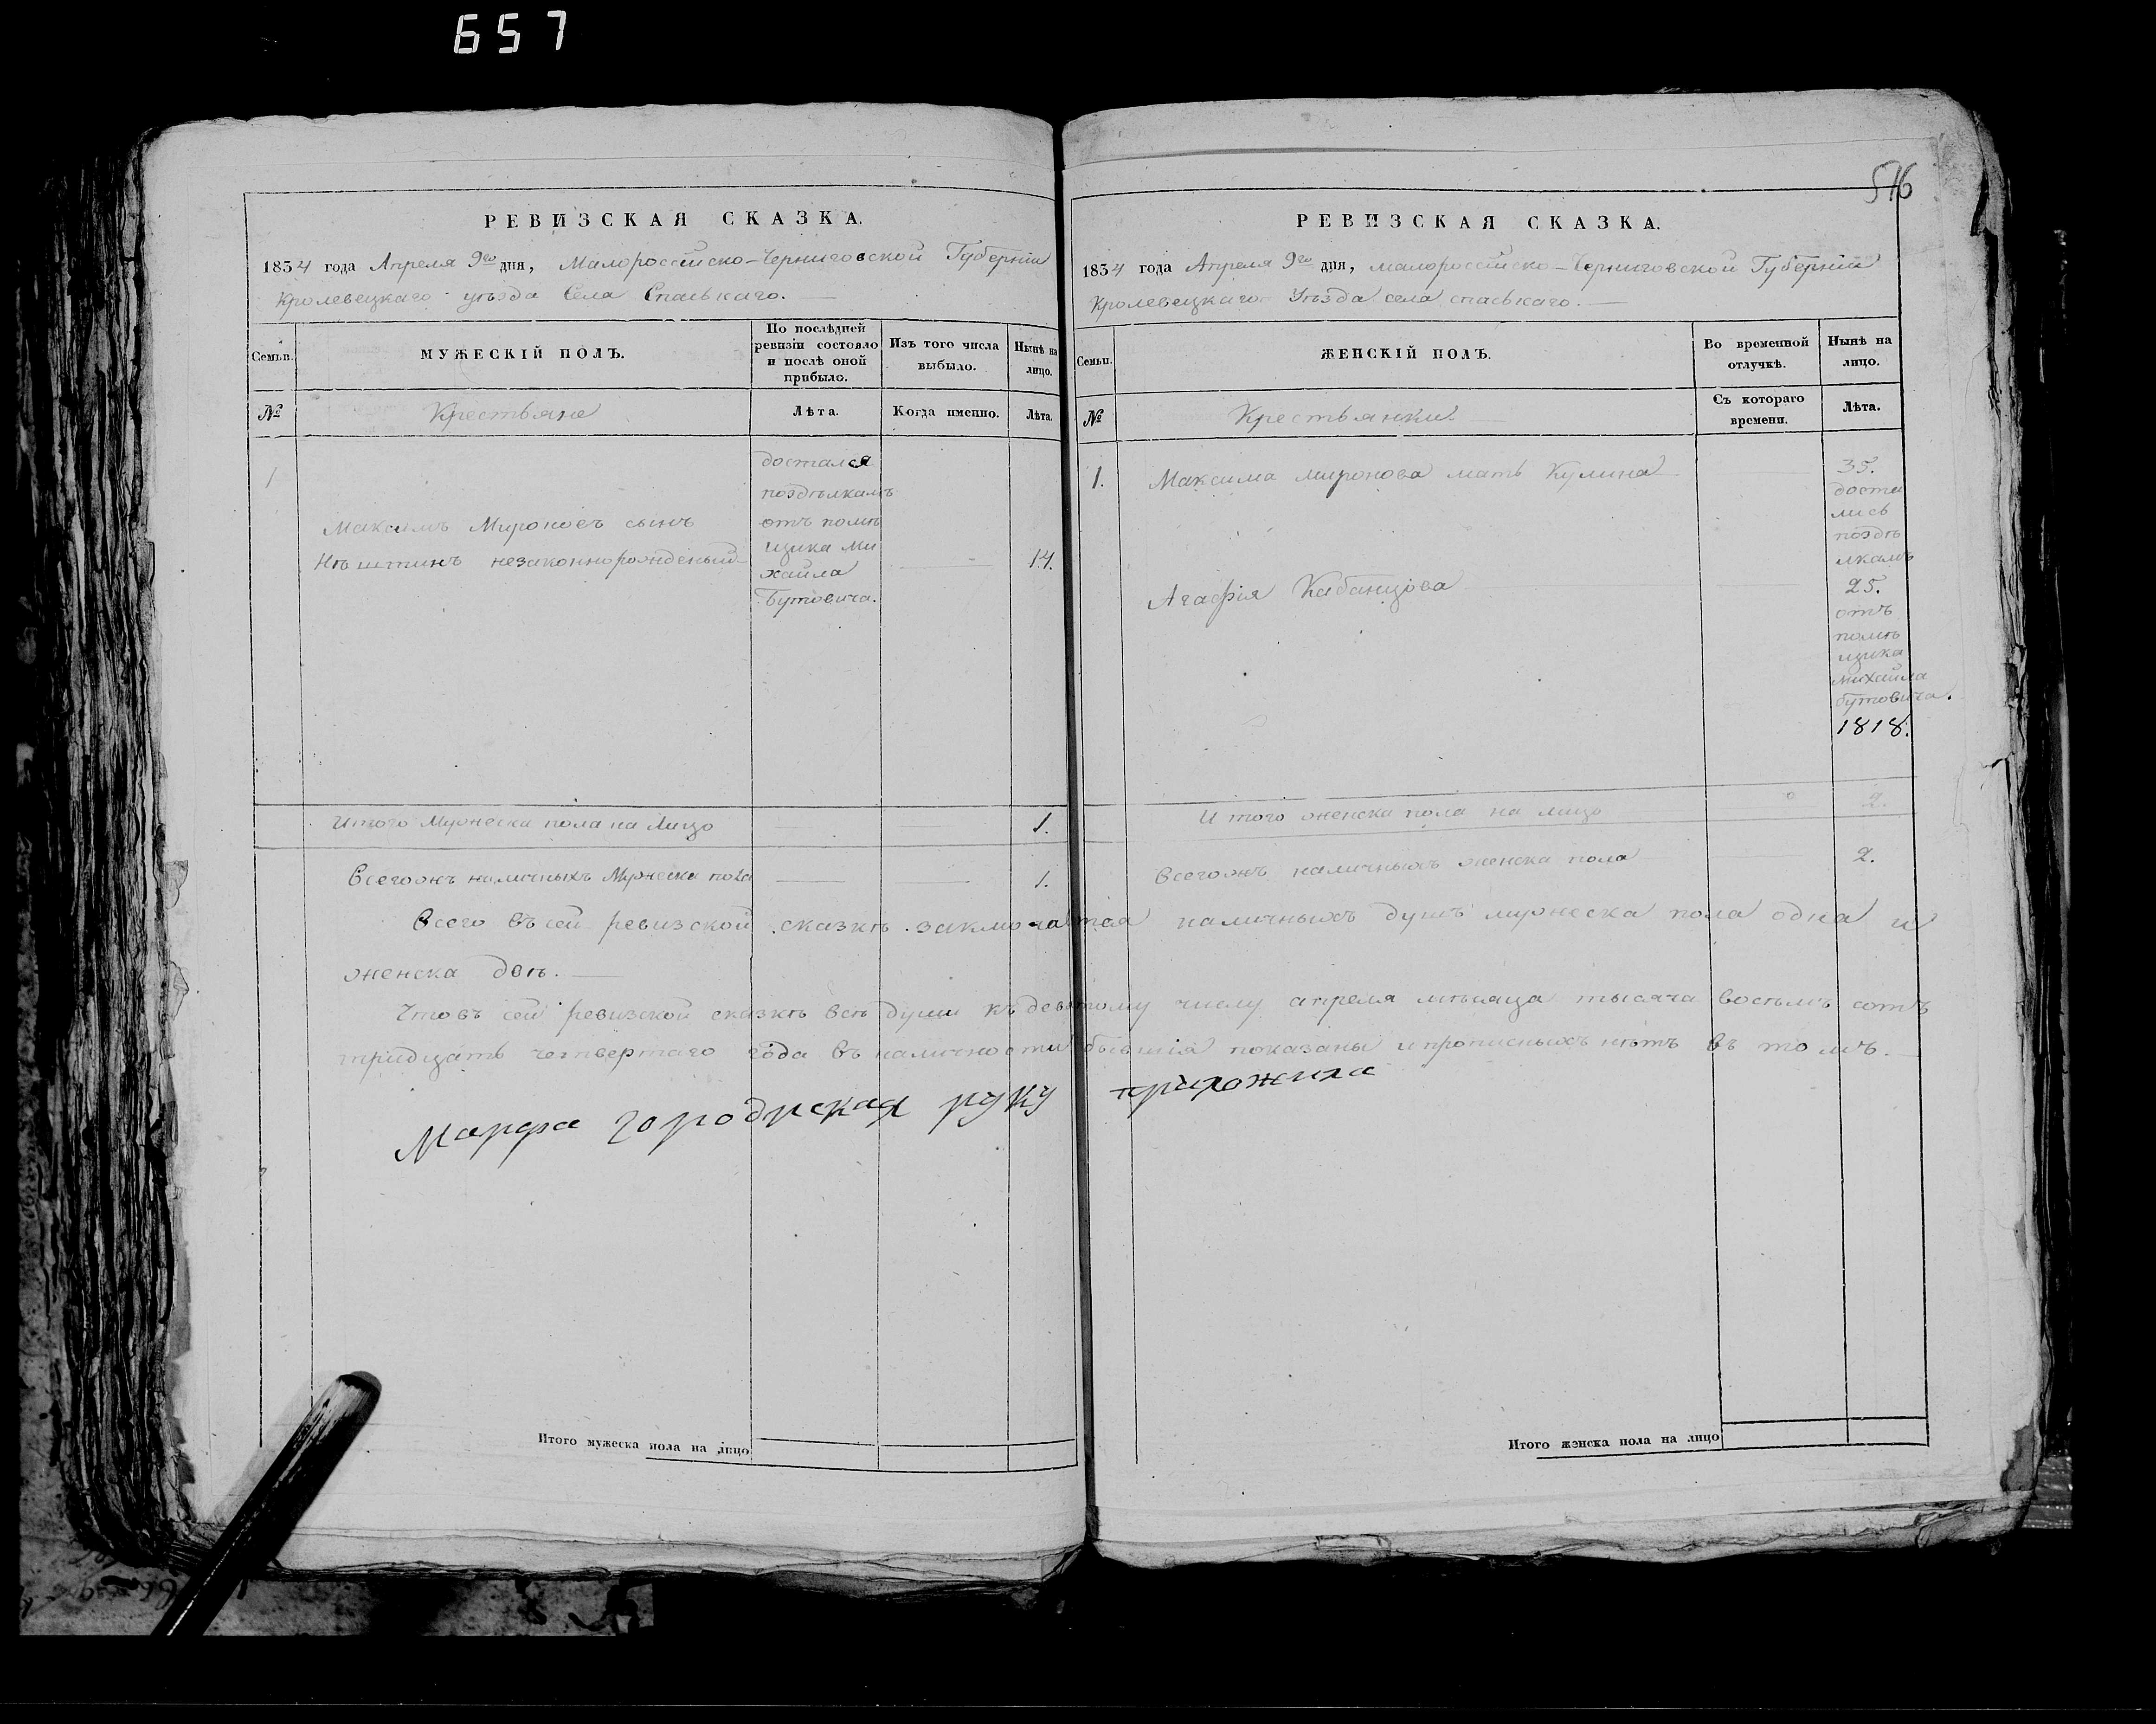 657
516
РЕВИЗСКАЯ СКАЗКА.
1834 года Апреля 9го дня, Малороссійско-Черниговской Губерніи
Кролевецкаго уѣзда Села Спаськаго.
Семьи.
МУЖЕСКІЙ ПОЛЪ.
По послѣдней ревизіи состояло и послѣ оной прибыло.
Изъ того числа выбыло.
Нынѣ на лицо.
№
Крестьяне
Лѣта.
Когда именно.
Лѣта.
1
Максимъ Мироновъ сынъ
незаконнорожденый
достался
поздѣлкамъ
отъ помѣ
щика Ми
хайла
Бутовича.
14.
Итого Мужеска пола на лицо 1.
Всегожъ наличныхъ Мужеска пола 1.
РЕВИЗСКАЯ СКАЗКА.
1834 года Апреля 9го дня, малороссійско-Черниговской Губерніи
Кролевецкаго Уѣзда села спаськаго.
Семьи.
ЖЕНСКІЙ ПОЛЪ.
Во временной отлучкѣ.
Нынѣ на лицо.
№
Крестьянки
Съ котораго времени.
Лѣта.
1.
Максима миронова мать Кулина
Агафія Кабанцова
35.
доста
лись
поздѣ
лкамъ
25.
отъ
помѣ
щика
михайла
бутовича.
1818.
Итого женска пола на лицо 0 2.
Всегожъ наличныхъ женска пола 2.
Всего въ сей ревизской сказкѣ заключается наличныхъ душъ мужеска пола одна и
женска двѣ.
Что въ сей ревизской сказкѣ всѣ души къ девятому числу апреля мѣсяца тысяча восемъ сотъ
тридцать четвертаго года въ наличности бывшія показаны и прописныхъ нѣтъ въ томъ.
Марфа городиская руку приложила
Итого мужеска пола на лицо
Итого женска пола на лицо